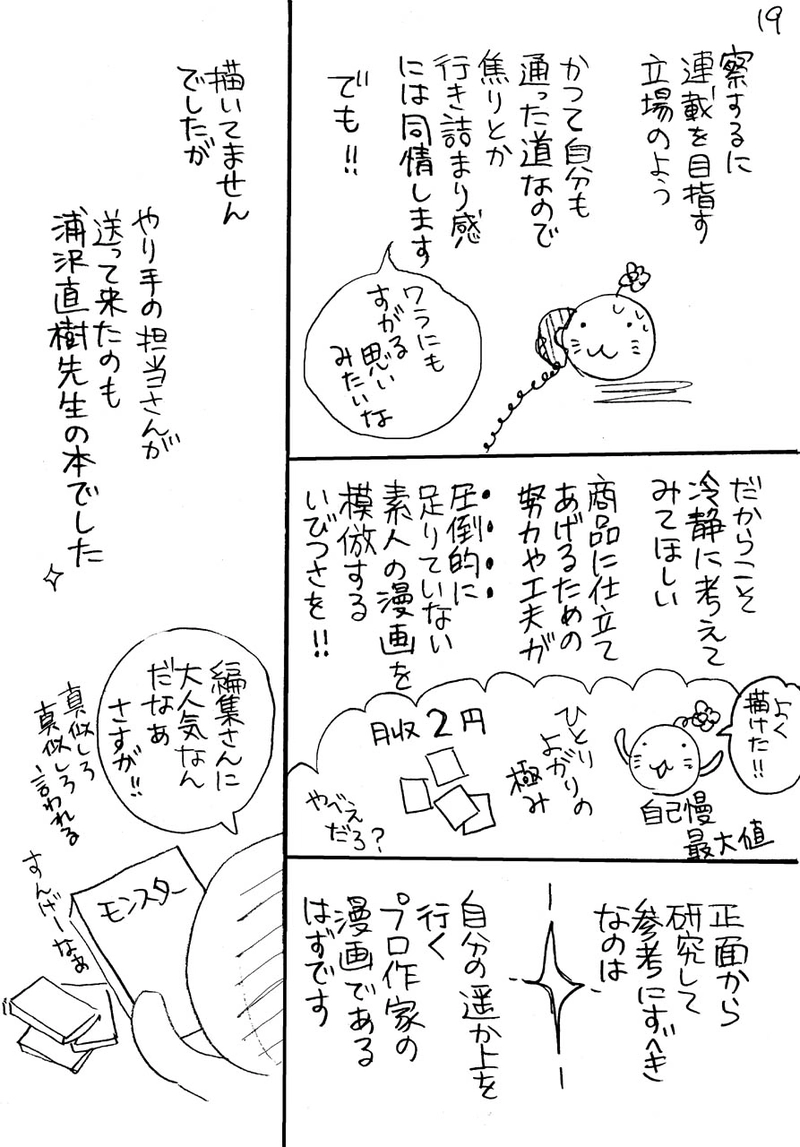 19
察するに
連載を目指す
立場のよう
かつて自分も
通った道なので
焦りとか
行き詰まり感
には同情します
でも!!
ワラにも
すがる
思い
みたいな
だからこそ
冷静に考えて
みてほしい
商品に仕立て
あげるための
努力や工夫が
圧倒的に
足りていない
素人の漫画を
模倣する
いびつさを!!
よく
描けた!!
自己慢
最大値
ひとり
よがりの
極み
月収2円
やべぇ
だろ?
正面から
研究して
参考にすべき
なのは
自分の遥か上を
行く
プロ作家の
漫画である
はずです
描いてません
でしたが
やり手の担当さんが
送って来たのも
浦沢直樹先生の本でした
編集さんに
大人気なん
だなぁ
さすが!!
真似しろ
真似しろ言われる
モンスター
すんげーなぁ